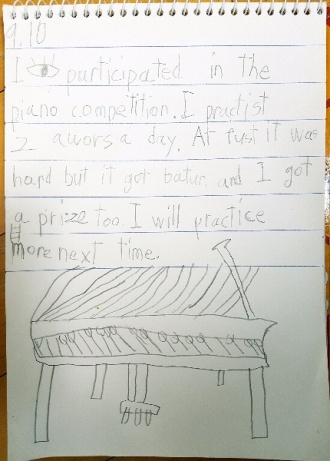 9.10
I participated in the
piano competition. I practist
2 awors a day. At furst it was
hard but it got batur and I got
a prize too. I will practice
more next time.